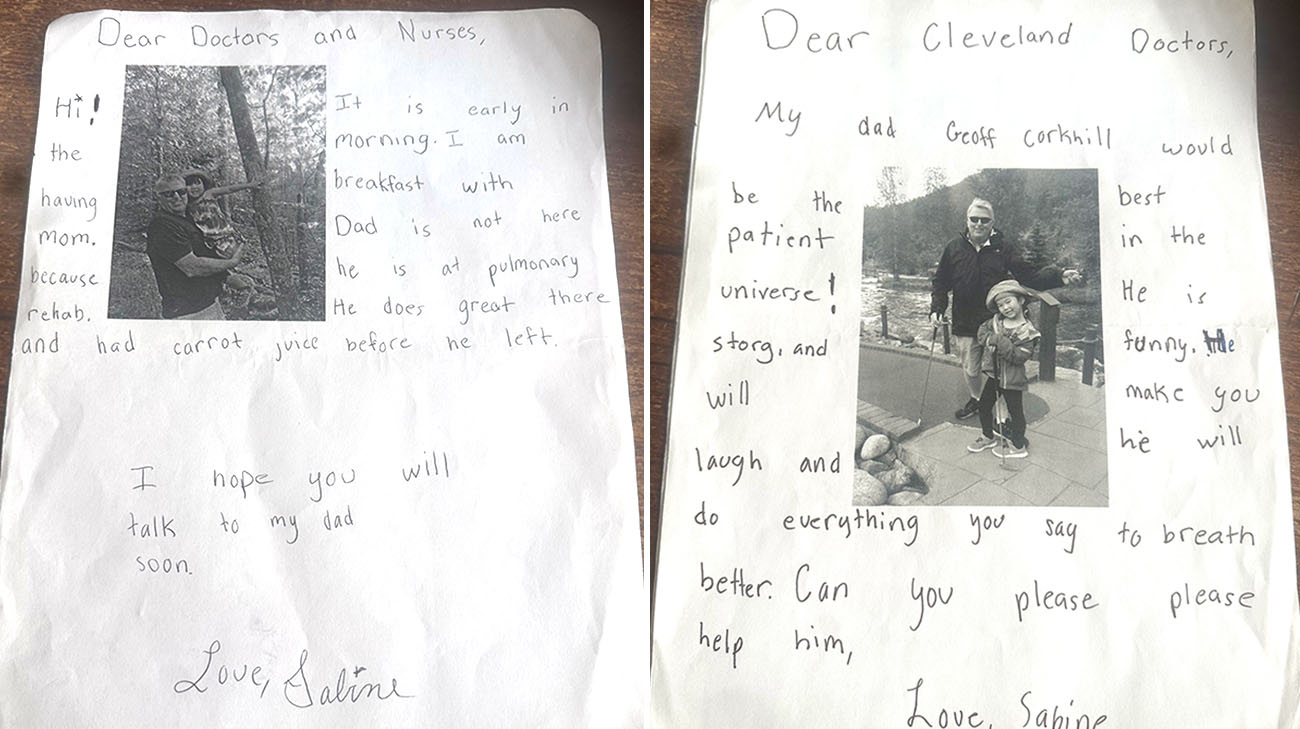 Dear Doctors and Nurses,
Hi! It is early in
the morning. I am
having breakfast with
mom. Dad is not here
because he is at pulmonary
rehab. He does great there
and had carrot juice before he left.
I hope you will
talk to my dad
soon.
Love, Sabine
Dear Cleveland Doctors,
My dad Geoff Corkhill would
be the best
patient in the
universe! He is
storg, and funny. He
will make you
laugh and he will
do everything you say to breath
better. Can you please please
help him,
Love, Sabine